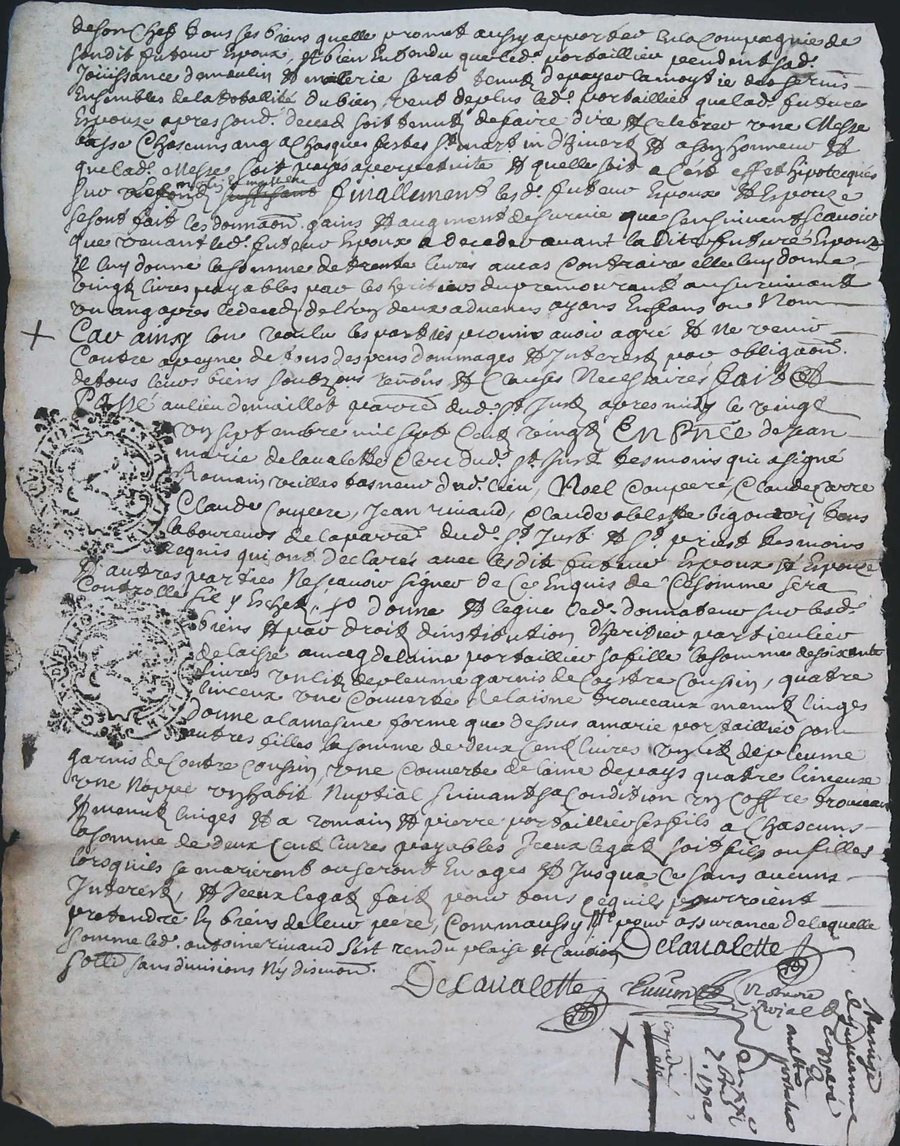 de son chef tous ses biens quelle promet aussy apporter en la Compagnie de
sondit futeur Epoux, et bien Entendu que led. portaillier pendent sad.
Jouissance de moulin et serat tenut de payer la moytie des servis
Ensembles de la totallité du bien, veut de plus led. portaillier que lad. future
Epouze apres sond. deced soit tenut de faire dire et celebrer une Messe
basse Chascuns ang a chasques festes St. martin d'hivert et a son honneur et
que lad. Messe soit payée a perpetuité et quelle soit a cest effet hipotecquée
sur finallement lesd. futeur Epoux et Epouze
se sont fait les donnaon. gains et augment de survie que sensuivent scavoir
que venant led. futeur Epoux a deceder avant la ditte future Epouze
Il luy donne la somme de trente livres au cas Contraire elle luy donne
vingt livres payables par les heritiers du premourant au survivant
un ang apres le deced de l'un deux advenus ayans Enfans ou Nom
Car ainsy lon voulu les parties promis avoir agré et ne venir
Contre a peyne de tous despens dommages et Interest par obligaon.
de tous leurs biens soubz renons. et clauses Necessaires fait et
Passé au lieu de maillot parre. dud. St. Just apres midy le vingt
un septembre mil sept cent vingt En Pnce de Jean
marie delavalette Clerc dud. St. Just tesmoins qui a signé
Romain vieillas dud. lieu, Noel Couperé, Claude
Claude Couperé, Jean rinaud, Claude tous
laboureurs de la parre. dud. St. Just et St. priest tesmoins
requis qui ont declarés avec lesdit futeur Epoux et Epouze
et autres parties Ne scavoir signer de ce Enquis de Ce somme sera
Controllé sil y Eschet, donne et legue led. donnateur sur lesd.
biens et par droit dinstitution d'heritier particulier
delaissé a magdelaine portaillier sa fille la somme de soixante
livres un lit de pleume garnis de Coitre Coussin, quatre
linceux une Couverte de laisne trousseaux menut linges
donne a la mesme forme que dessus a marie portaillier son
autres filles la somme de deux cent livres un lit de pleume
garnis de Coitre Coussin une Couverte de laine de pays quatre linceux
une Nappe un habit Nuptial suivant sa Condition un Coffre trousseau
et menut linges et a romain et pierre portaillier ses fils a Chascuns
la somme de deux cent livres payables Iceux legat soit fils ou filles
lorsquils se marieront ou seront En ages et Jusqua ce sans aucuns
Interest, et Iceux legat fait pour tous ce quils pourroient
pretendre biens de leur pere, Comm aussy pour assurance de laquelle
somme led. antoine rinaud sest rendu plaise et Caution Delavalette
solid. sans divisions Ny discuon.
Delavalette Notaire
roial
Expedié
Mariage
Couperé